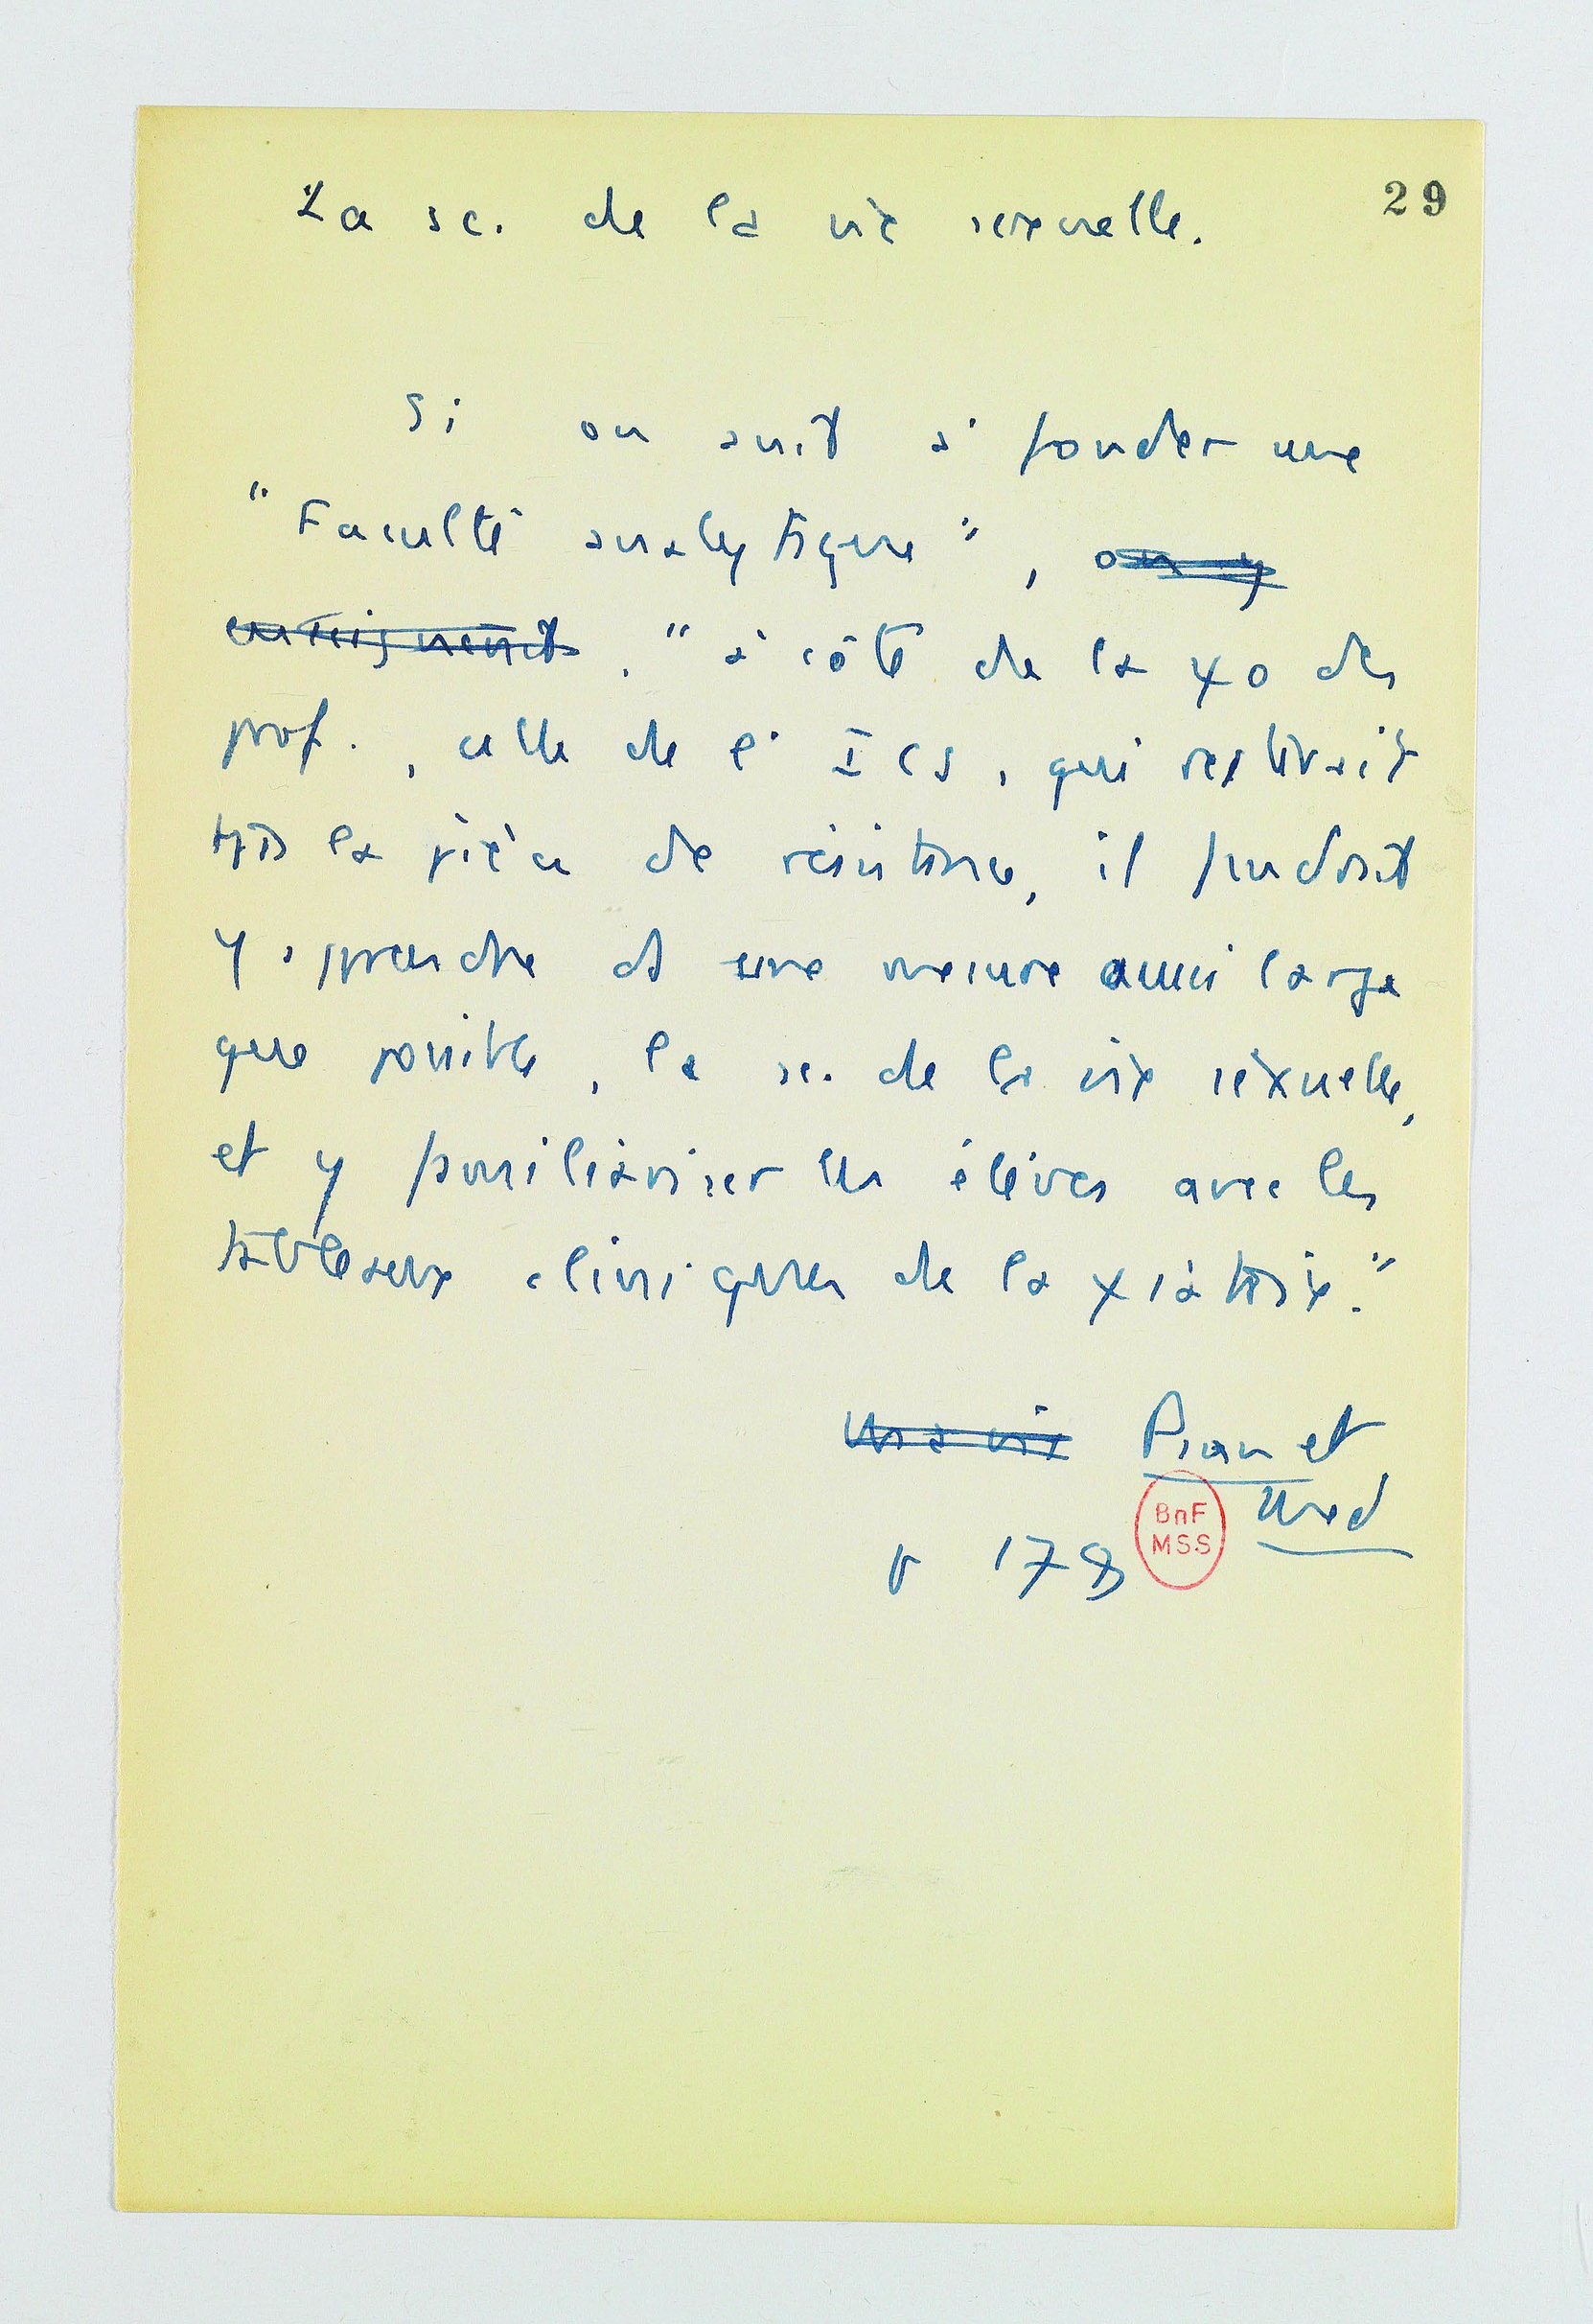 La sc. de la vie sexuelle.
29
Si on avait à fonder une
"Faculté analytique", on y
enseignerait, "à côté de la ψo des
prof., celle de l'ICS, qui resterait
tjrs la pièce de résistance, il faudrait
y apprendre ds une mesure aussi large
que possible, la sc. de la vie sexuelle,
et y familiariser les élèves avec les
tableaux cliniques de la ψiatrie."
Ma vie Psan et
Med
p 178
BnF
MSS